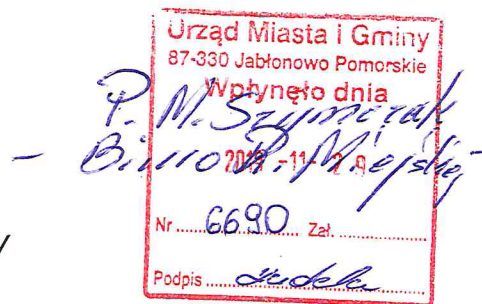 Urząd Miasta i Gminy
87-330 Jabłonowo Pomorskie
Wpłynęło dnia
P. M. Szymczak
- Biuro R. Miejskiej
-11-
Nr ...... 6690 ...... Zał. ......................
Podpis ......